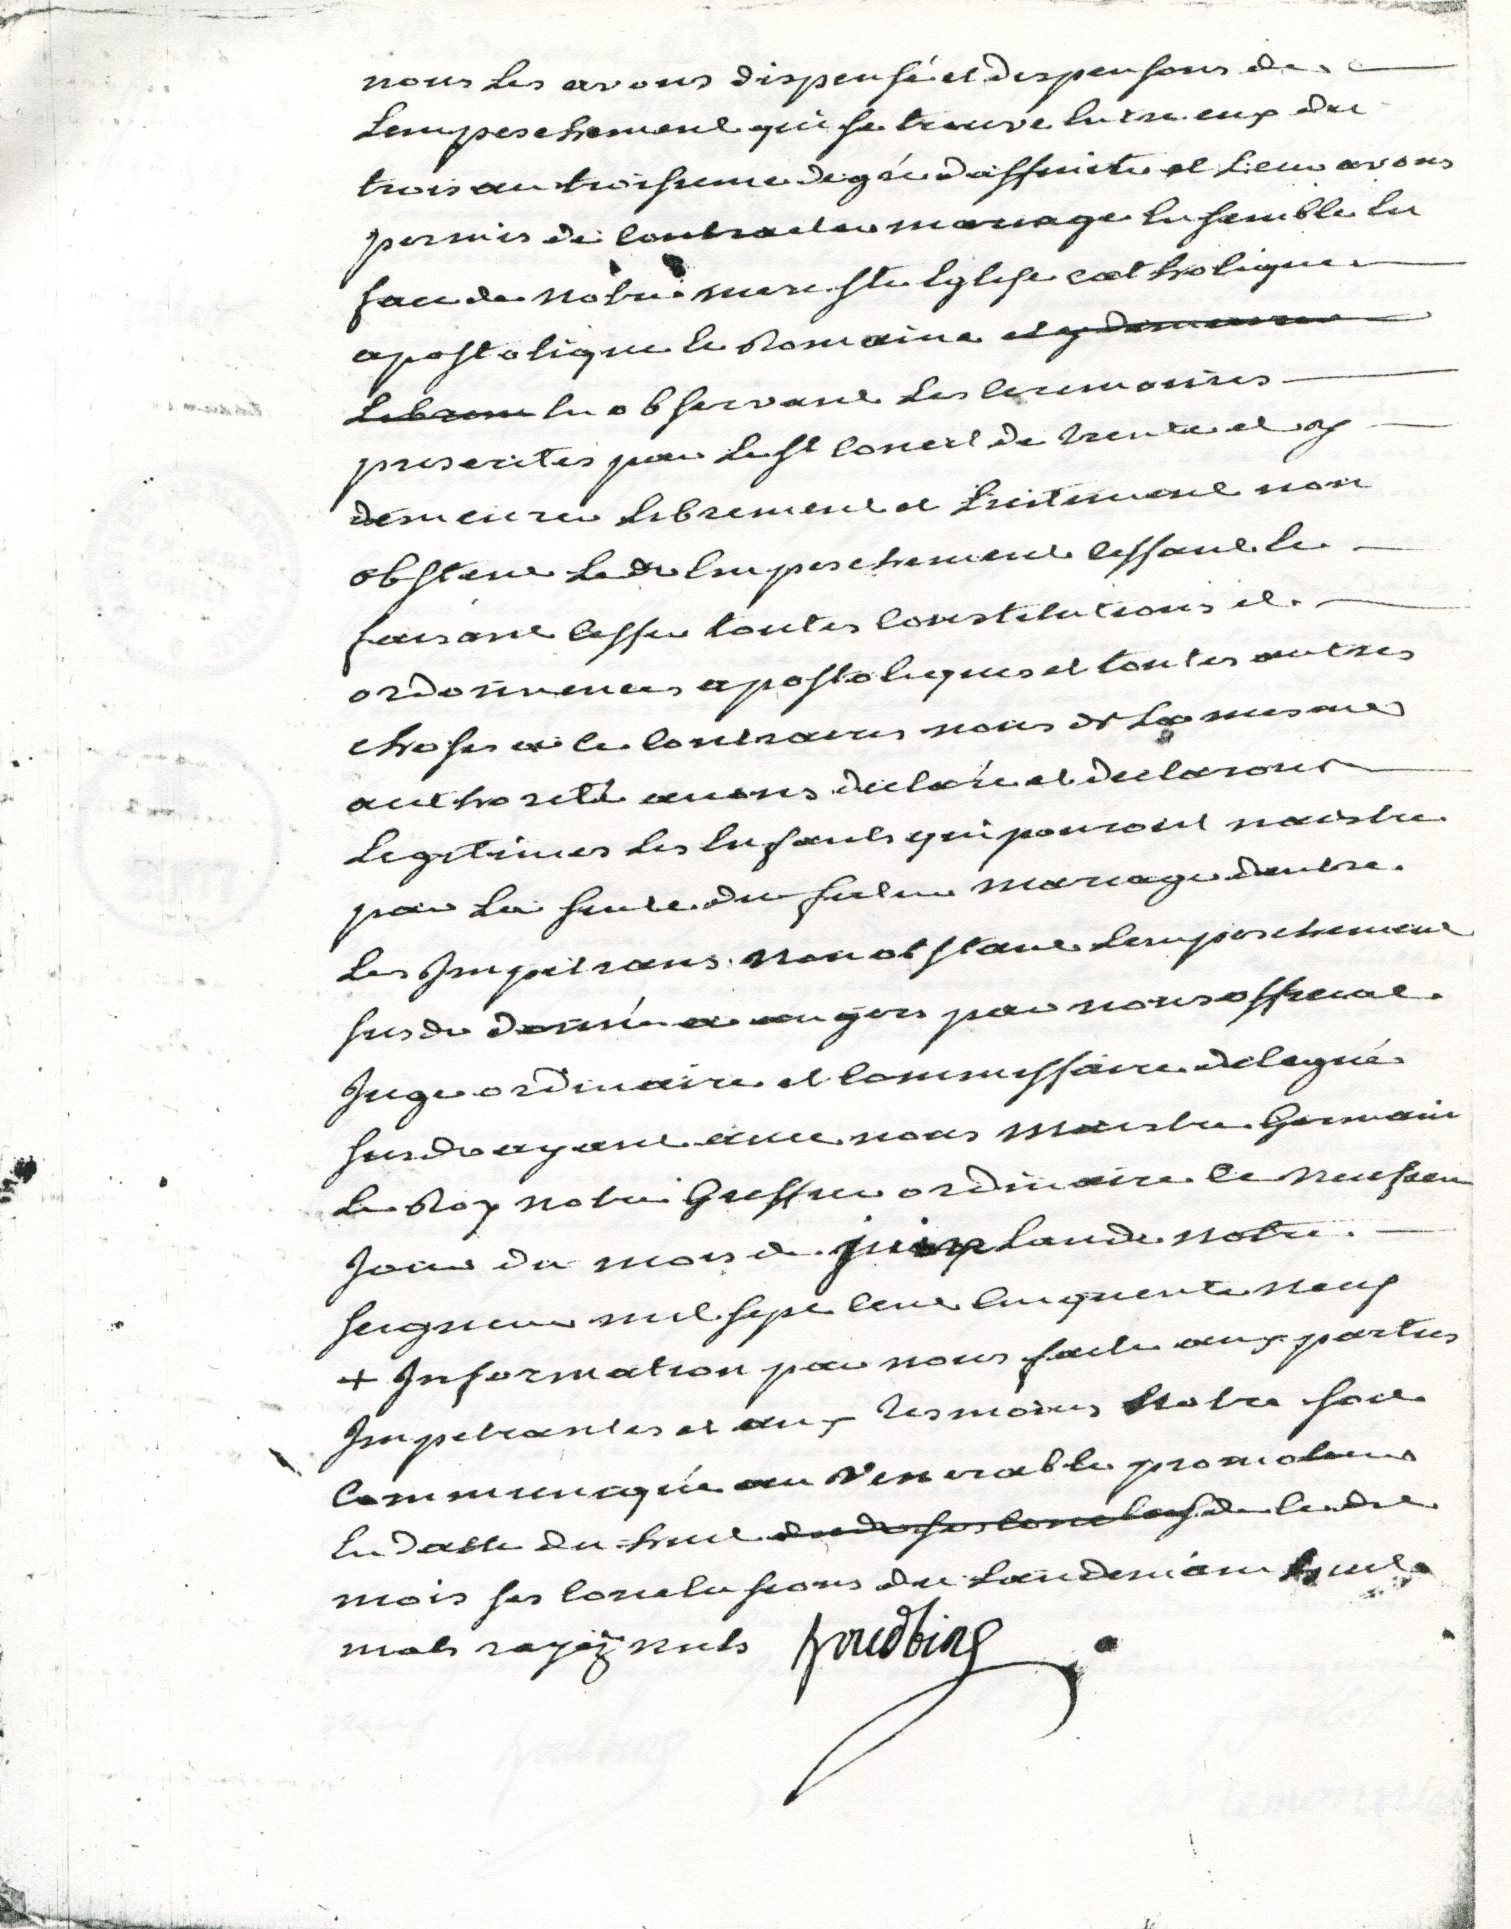 nous les avons dispensé et dispensons de
lempeschement qui se trouve entre eux du
trois au troisieme degré daffinité et leur avons
permis de contracter mariage ensemble en
face de notre mere ste eglise catholique
apostolique et Romaine et y demeurer
librem en observant les ceremonies
prescrites par le st concil de trente et y
demeurer librement et licitement non
obstant led empeschement cessant et
faisant cesser toutes constitutions et
ordonnences apostoliques et toutes autres
choses a ce contraires nous de la mesme
authorité avons declaré et declarons
legitimes les enfants qui pouront naistre
par la suite du futur mariage dentre
les Impetrans non obstant lempeschement
susd donné a angers par nous official
Juge ordinaire et commissaire delegué
susd ayant avec nous maistre Germain
le Roy notre Greffier ordinaire le neufiem
Jour du mois de juin lan de notre
seigneur mil sept cent cinquente neuf
+ Information par nous faite aux parties
Impetrantes et aux tesmoins notre soit
communiqué au venerable promoteur
en datte du huit de ced
mois ses conclusions du landemain huit
mots rayéz nuls